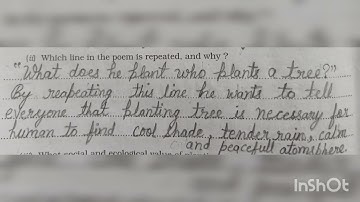 (ii) Which line in the poem is repeated, and why ?
"What does he plant who plants a tree?"
By reapeating this line he wants to tell
everyone that planting tree is necessary for
human to find cool shade, tender rain, calm
and peacefull atomsbhere.
What social and ecological value of
InShOt